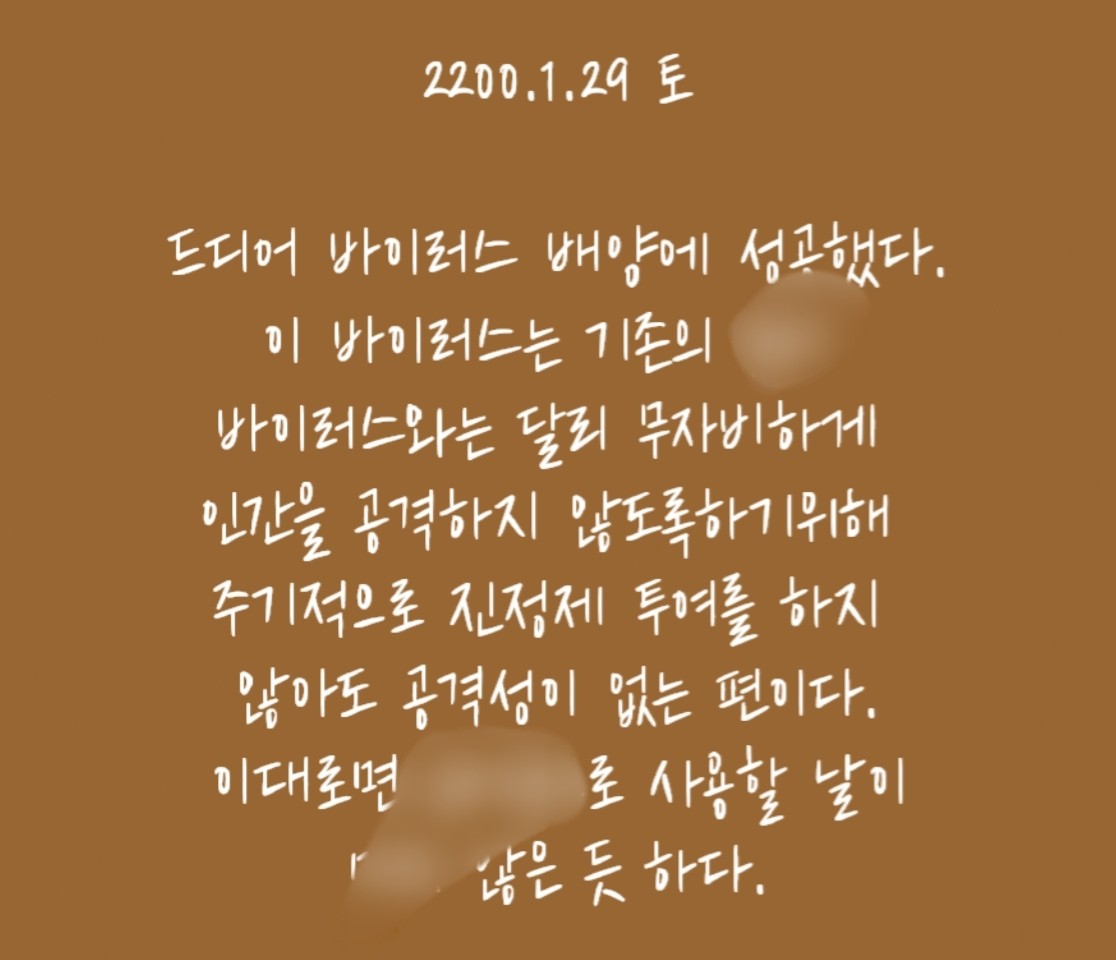 2200.1.29 토
드디어 바이러스 배양에 성공했다.
이 바이러스는 기존의
바이러스와는 달리 무자비하게
인간을 공격하지 않도록하기위해
주기적으로 진정제 투여를 하지
않아도 공격성이 없는 편이다.
이대로면 로 사용할 날이
않은 듯 하다.